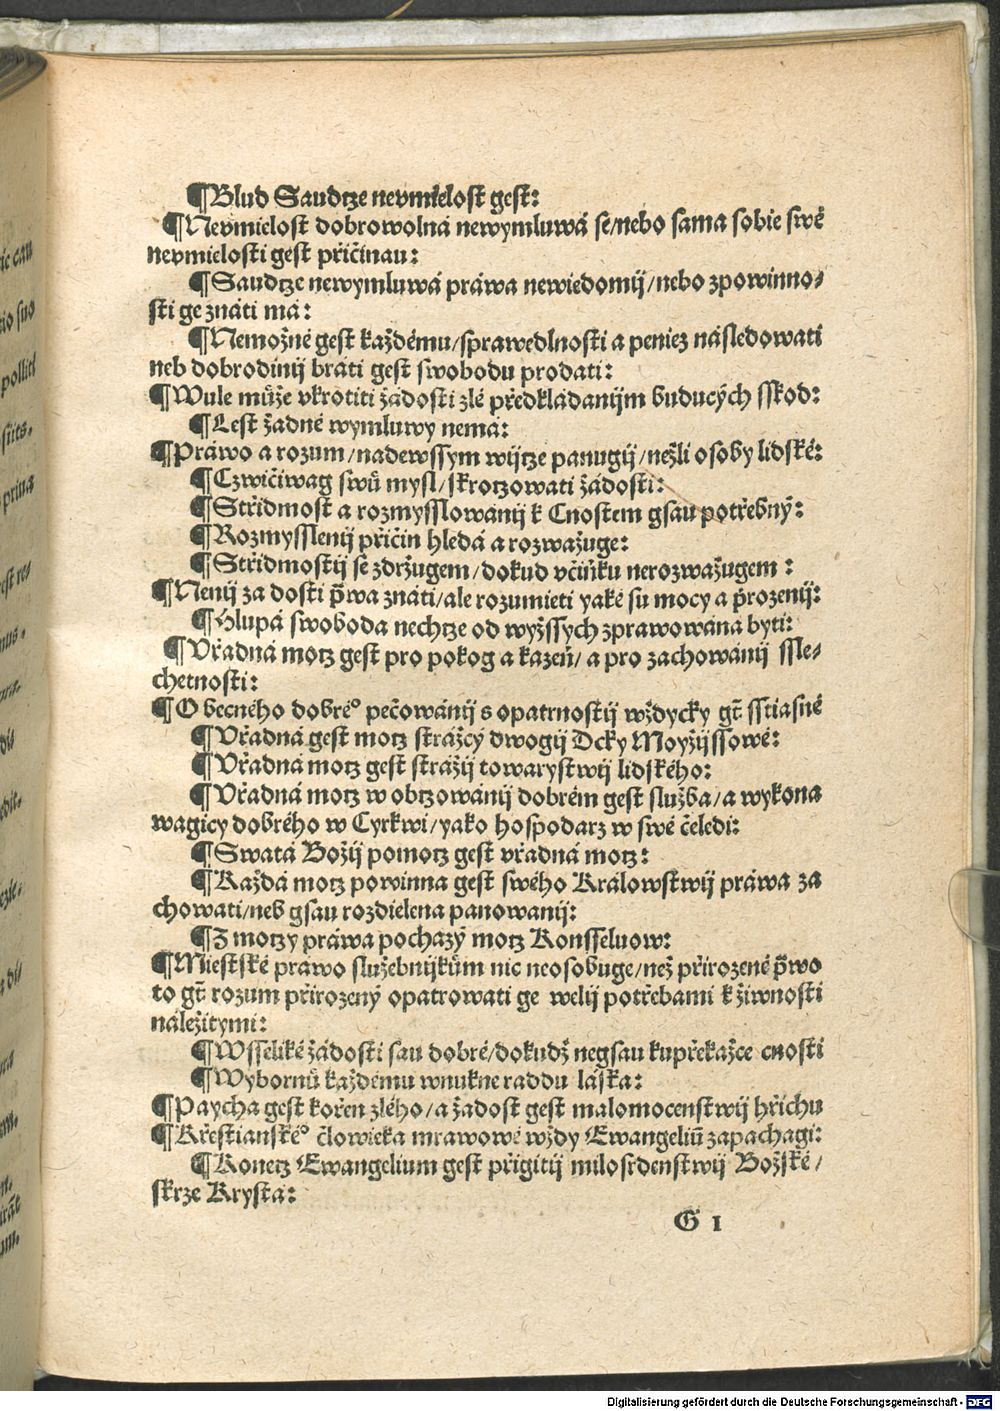 ¶Blud Saudtze nevmielost gest:
¶Nevmielost dobrowolná newymluwá se/nebo sama sobie swé
nevmielosti gest přičinau:
¶Saudtze newymluwá práwa newiedomij/nebo zpowinno⸗
sti ge znáti má:
¶Nemožné gest každému/sprawedlnosti a peniez následowati
neb dobrodinij bráti gest swobodu prodati:
¶Wule muože vkrotiti žádosti zlé předkládanijm buducých sskod:
¶Lest žadné wymluwy nemá:
¶Práwo a rozum/nadewssym wijtze panugij/nežli osoby lidské:
¶Czwičiwag swuo mysl/skrotzowati žádosti:
¶Střidmost a rozmysslowánij k Cnostem gsau potřebný:
¶Rozmysslenij přičin hledá a rozwažuge:
¶Střidmostij se zdržugem/dokud včiňku nerozwažugem:
¶Nenij za dosti p̃wa znáti/ale rozumieti yaké su mocy a přrozenij:
¶Hlupá swoboda nechtze od wyžssych zprawowána byti:
¶Vřadná motz gest pro pokog a kazeň/a pro zachowánij ssle⸗
chetnosti:
¶O becného dobré° pečowánij s opatrnostij wždycky gt̃ sstiasné
¶Vřadná gest motz strážcý dwogij Dcky Moyžijssowé:
¶Vřadná motz gest strážij towarystwij lidského:
¶Vřadná motz w obtzowánij dobrém gest služba/a wykona
wagicy dobrého w Cyrkwi/yako hospodarz w swé čeledi:
¶Swatá Božij pomotz gest vřadná motz:
¶Každá motz powinna gest swého Králowstwij práwa za
chowati/neb gsau rozdielena panowanij:
¶Z motzy práwa pochazý motz Konsseluow:
¶Miestské prawo služebnijkuom nic neosobuge/než přirozené p̃wo
to gt̃ rozum přirozený opatrowati ge welij potřebami k žiwnosti
náležitymi:
¶Wsseliké žádosti sau dobré/dokudž negsau kupřekažce cnosti
¶Wybornuo každému wnukne raddu láska:
¶Paycha gest kořen zlého/a žadost gest malomocenstwij hřichu
¶Křestianské° člowieka mrawowé wždy Ewangeliũ zapachagi:
¶Konetz Ewangelium gest přigitij milosrdenstwij Božské/
skrze Krysta:
G 1
Digitalisierung gefördert durch die Deutsche Forschungsgemeinschaft - DFG